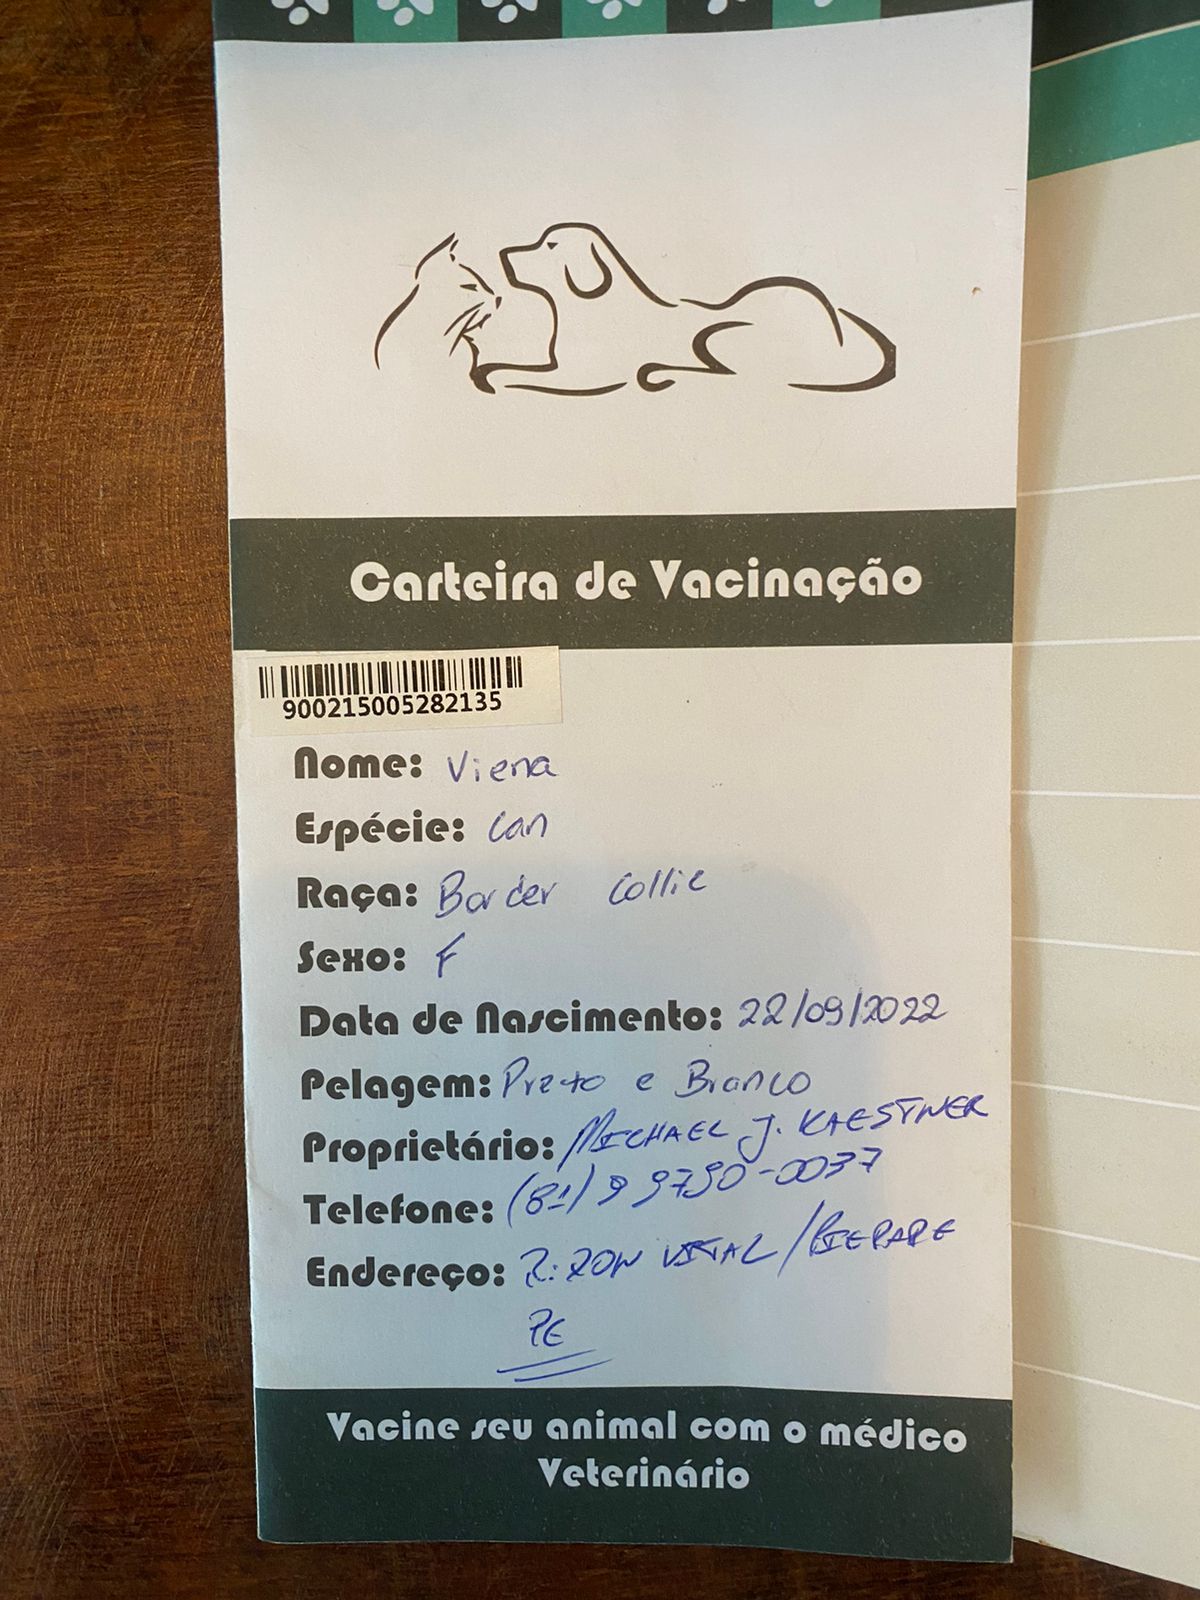 Carteira de Vacinação
900215005282135
Nome: Viena
Espécie: Can
Raça: Border Collie
Sexo: F
Data de Nascimento: 22/09/2022
Pelagem: Preto e Branco
Proprietário: MICHAEL J. KAESTNER
Telefone: (81) 9 9790-0037
Endereço: R: VITAL /
PE
Vacine seu animal com o médico
Veterinário